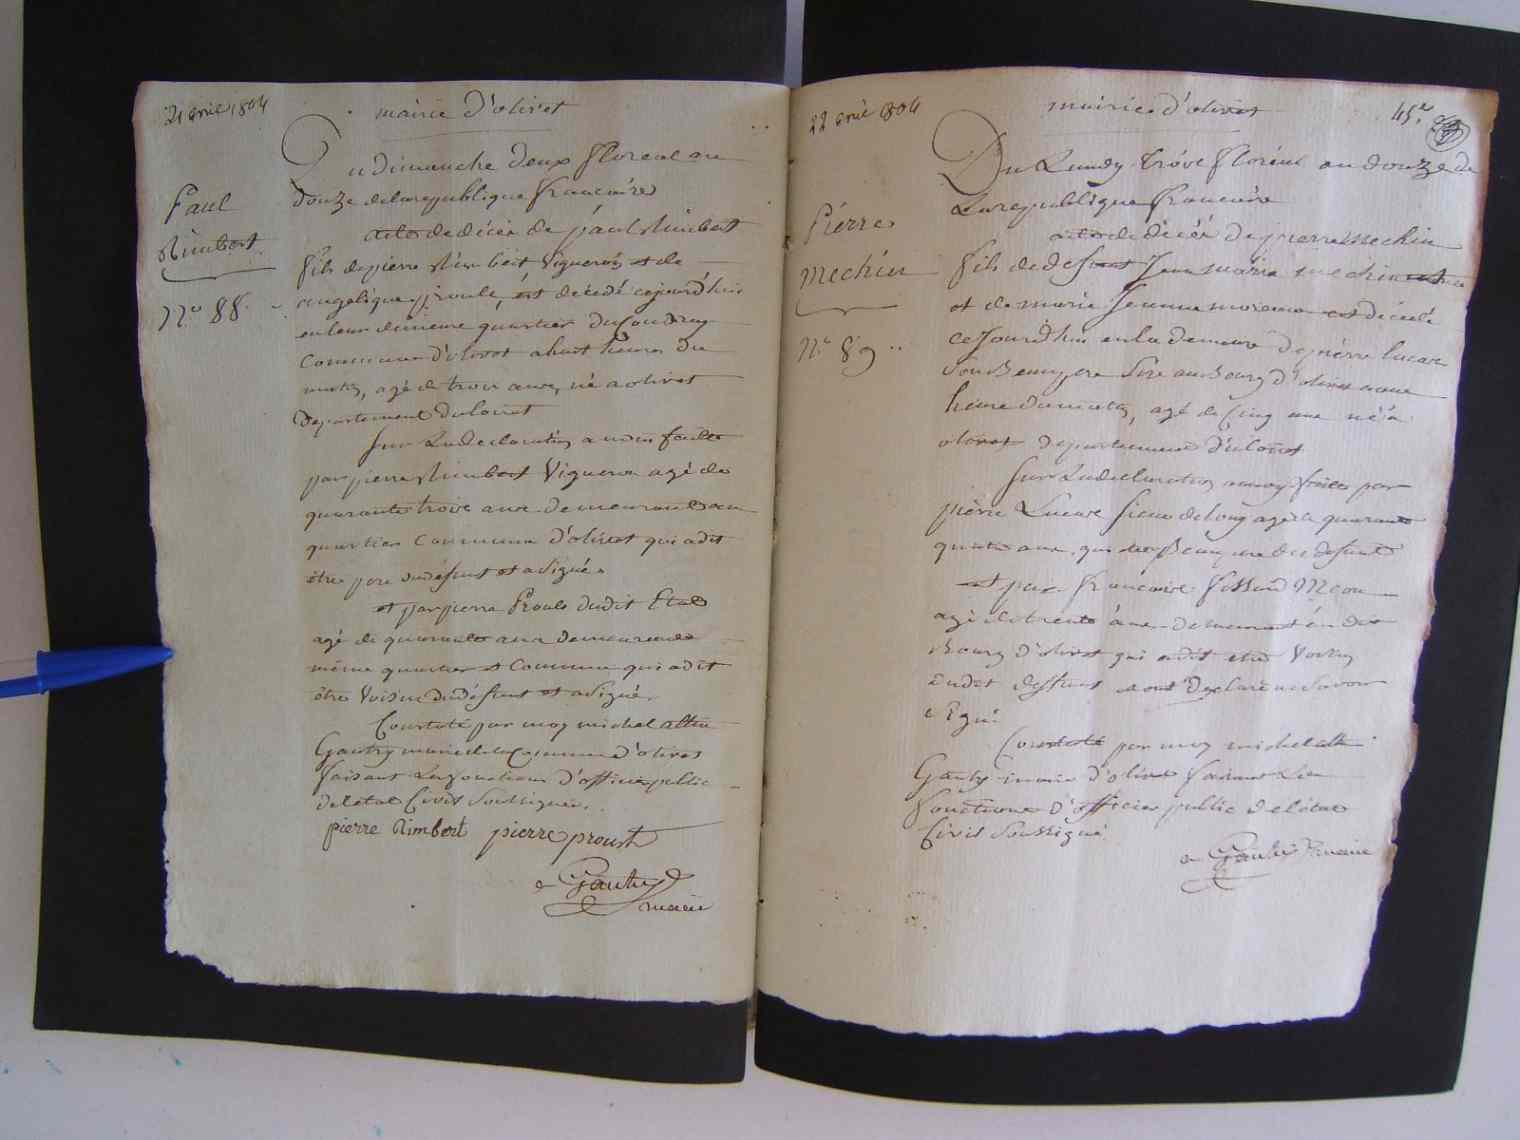 21 avril 1804
mairie d'olivet
Du dimanche deux floreal an
douze de la republique francaire
Paul
Rimbert
N.o 88.
acte de décée de paul Rimbert
fils de pierre Rimbert Vigneron et de
angelique proule est décédé cejourd'huis
en leur demeure quartier du Coudray
Commune d'olivet a huit heures du
matin, agé de trois ans, né a olivet
departement du loiret
Sur La declaration a nous faitte
par pierre Rimbert Vigneron agé de
quarante trois ans demeurant au
quartier commune d'olivet qui a dit
être pere du défunt et a Signé.
et par pierre Proule dudit Etat
agé de quarante ans demeurant
même quartier et Commune qui a dit
être Voisin du défunt et a Signé.
Constaté par moy michel
Gautry maire de la Commune d'olivet
faisant Les fonctions d'officier public
de l'état Civil Soussignée.
pierre Rimbert pierre proust
Gautry
maire
22 avril 1804
mairie d'olivet
45.e
Du Lundy Trois floréal an douze de
La republique francaire
Pierre
Mechin
N.o 89
acte de décée de pierre Mechin
fils de defunt Jean marie mechin
et de marie Jeanne moreau est décédé
cejourd'hui en la demeure de pierre Lucas
Son Beaupere Size au Bourg d'olivet a une
heure du matin, agé de Cinq ans né a
olivet departement du loiret
Sur La declaration a moy faite par
pierre Lucas agé de quarante
quatre ans, qui Beaupere du defunt
et par francoise
agé de trente ans demeurant au dit
Bourg d'olivet qui a dit etre Voisin
dudit deffunt et ont declaré ne Savoir
Signé.
Constaté par moy michel
Gautry maire d'olivet faisant Les
fonctions d'officier public de l'état
Civil Soussigné.
Gautry maire